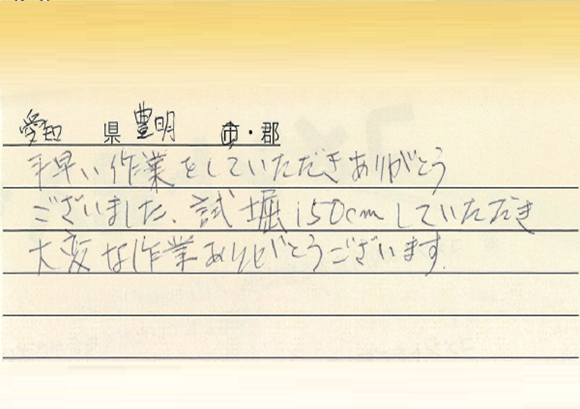 愛知 県 豊明 市・郡
手早い作業をしていただきありがとう
ございました、試堀150cmしていただき
大変な作業ありがとうございます.